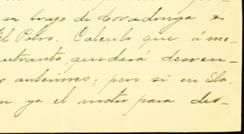 trazo de Covadonga
El Potro. Calculo que á me-
entrante, quedará desven-
anteriores; pero si en Sla-
ya el motor para des-